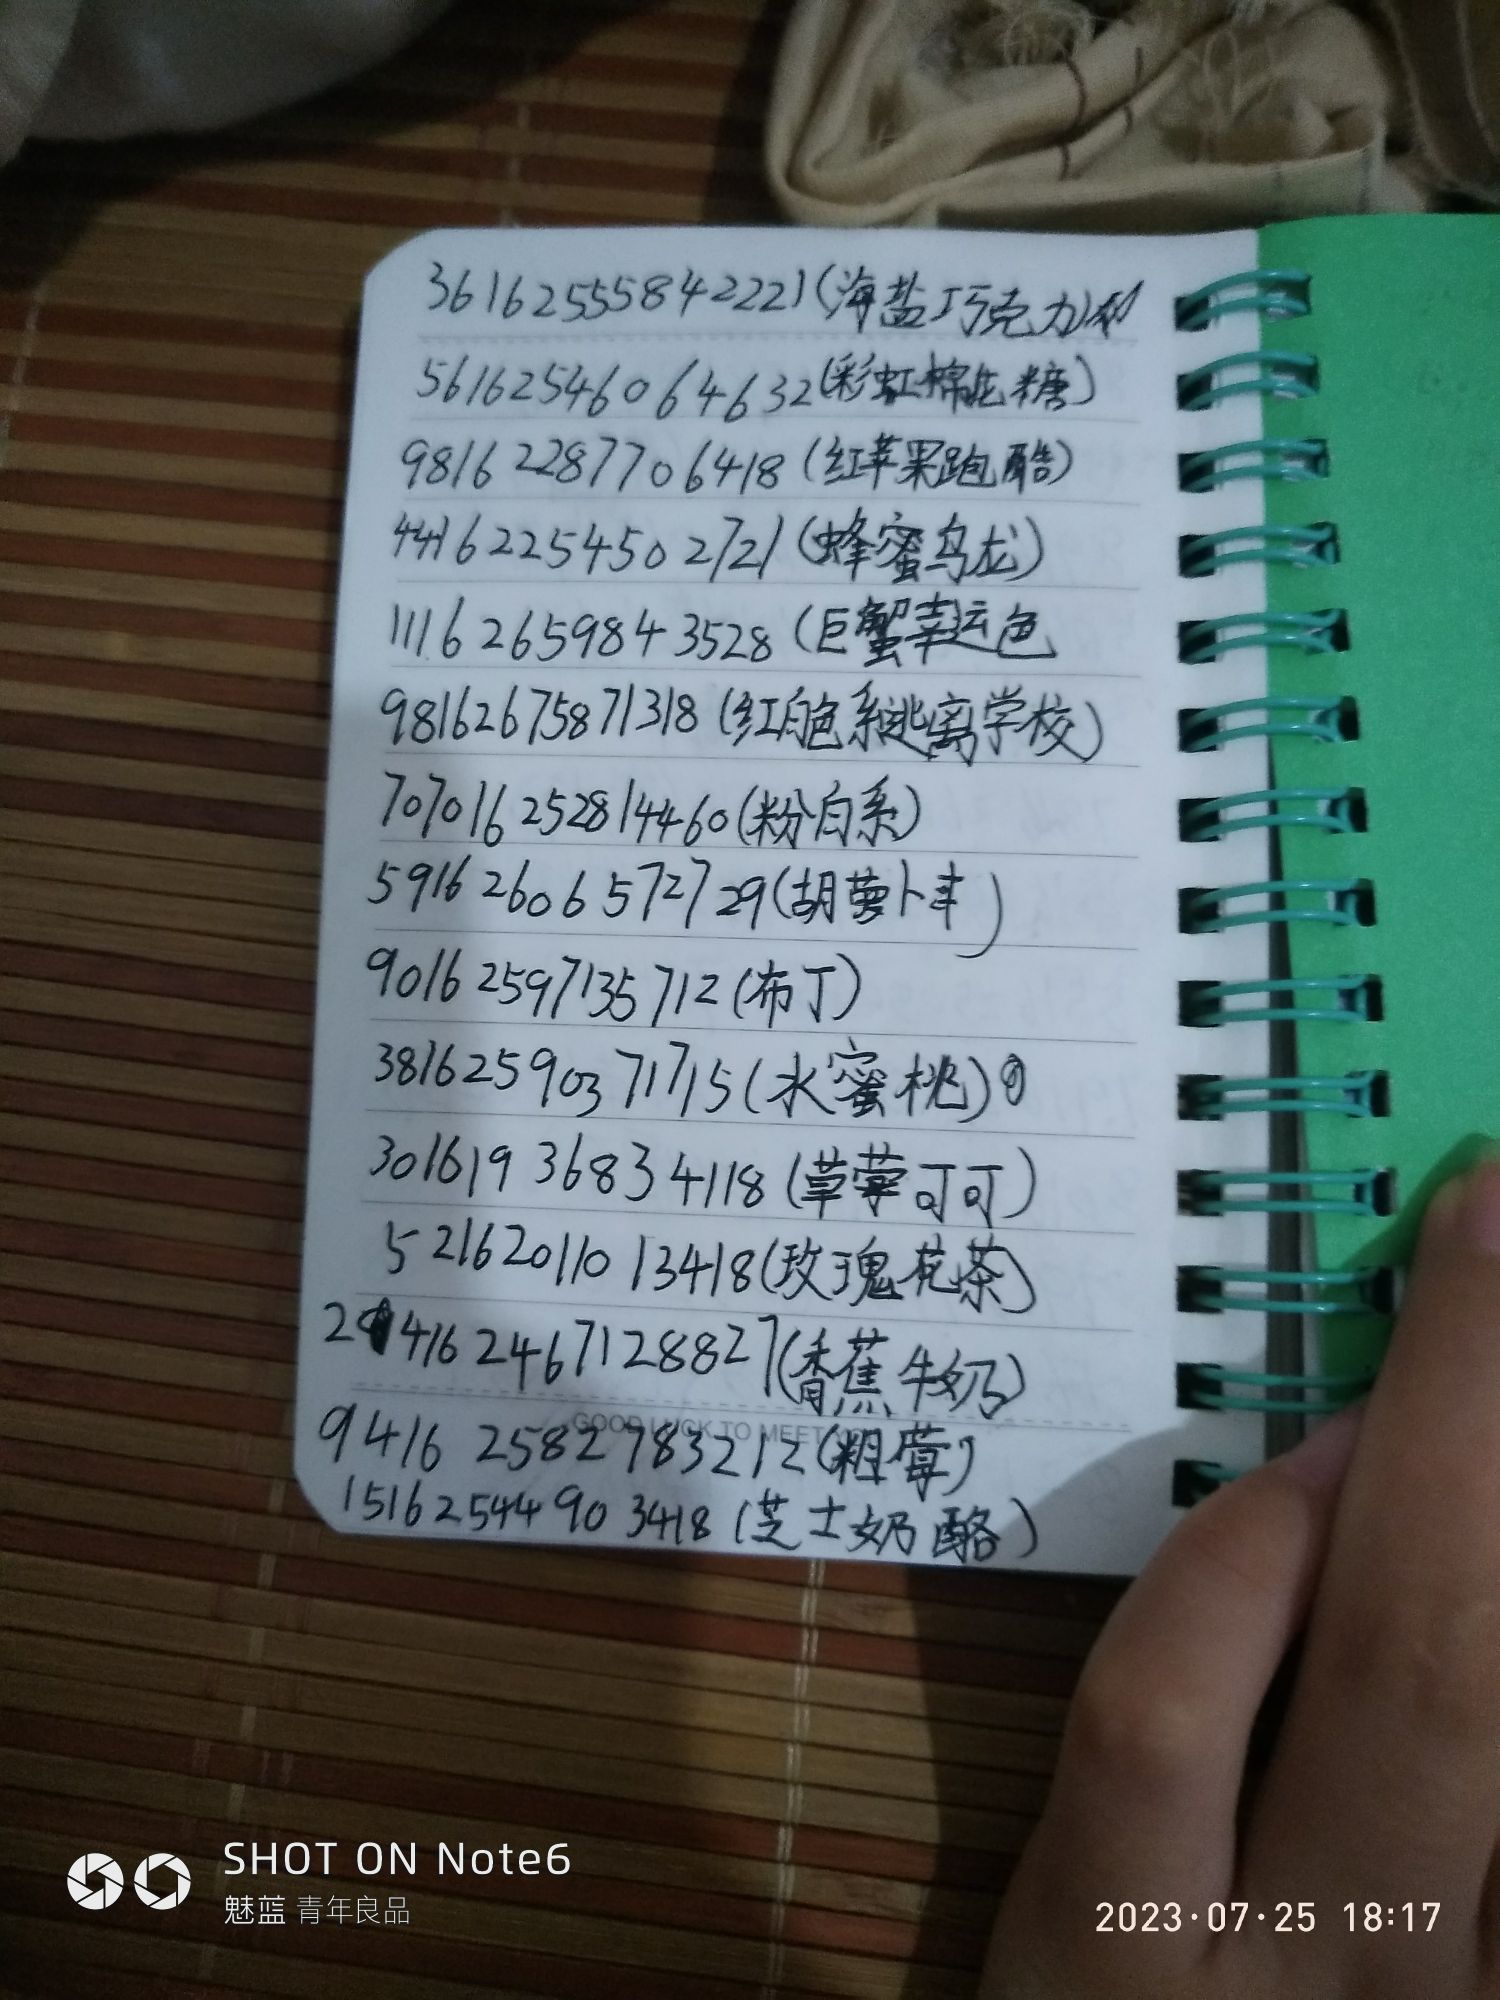 3616255584 2221(海盐巧克力
561625460 64632(彩虹棉花糖)
9816 22877 06418(红苹果跑酷)
4416225450 2721(蜂蜜乌龙)
1116 265984 3528(巨蟹幸运色
98162675871318(红白色系逃离学校)
707016252814460(粉白系)
5916 26065727 29(胡萝卜丰)
9016 2597135 712(布丁)
38162590371715(水蜜桃)
301619 3683 4118(草莓可可)
5 21620110 13418(玫瑰花茶)
416 2467128827(香蕉牛奶)
9416 2582783212(粗莓)
15162544903418(芝士奶酪)
GOOD LUCK TO MEET
SHOT ON Note6
魅蓝 青年良品
2023·07·25 18:17